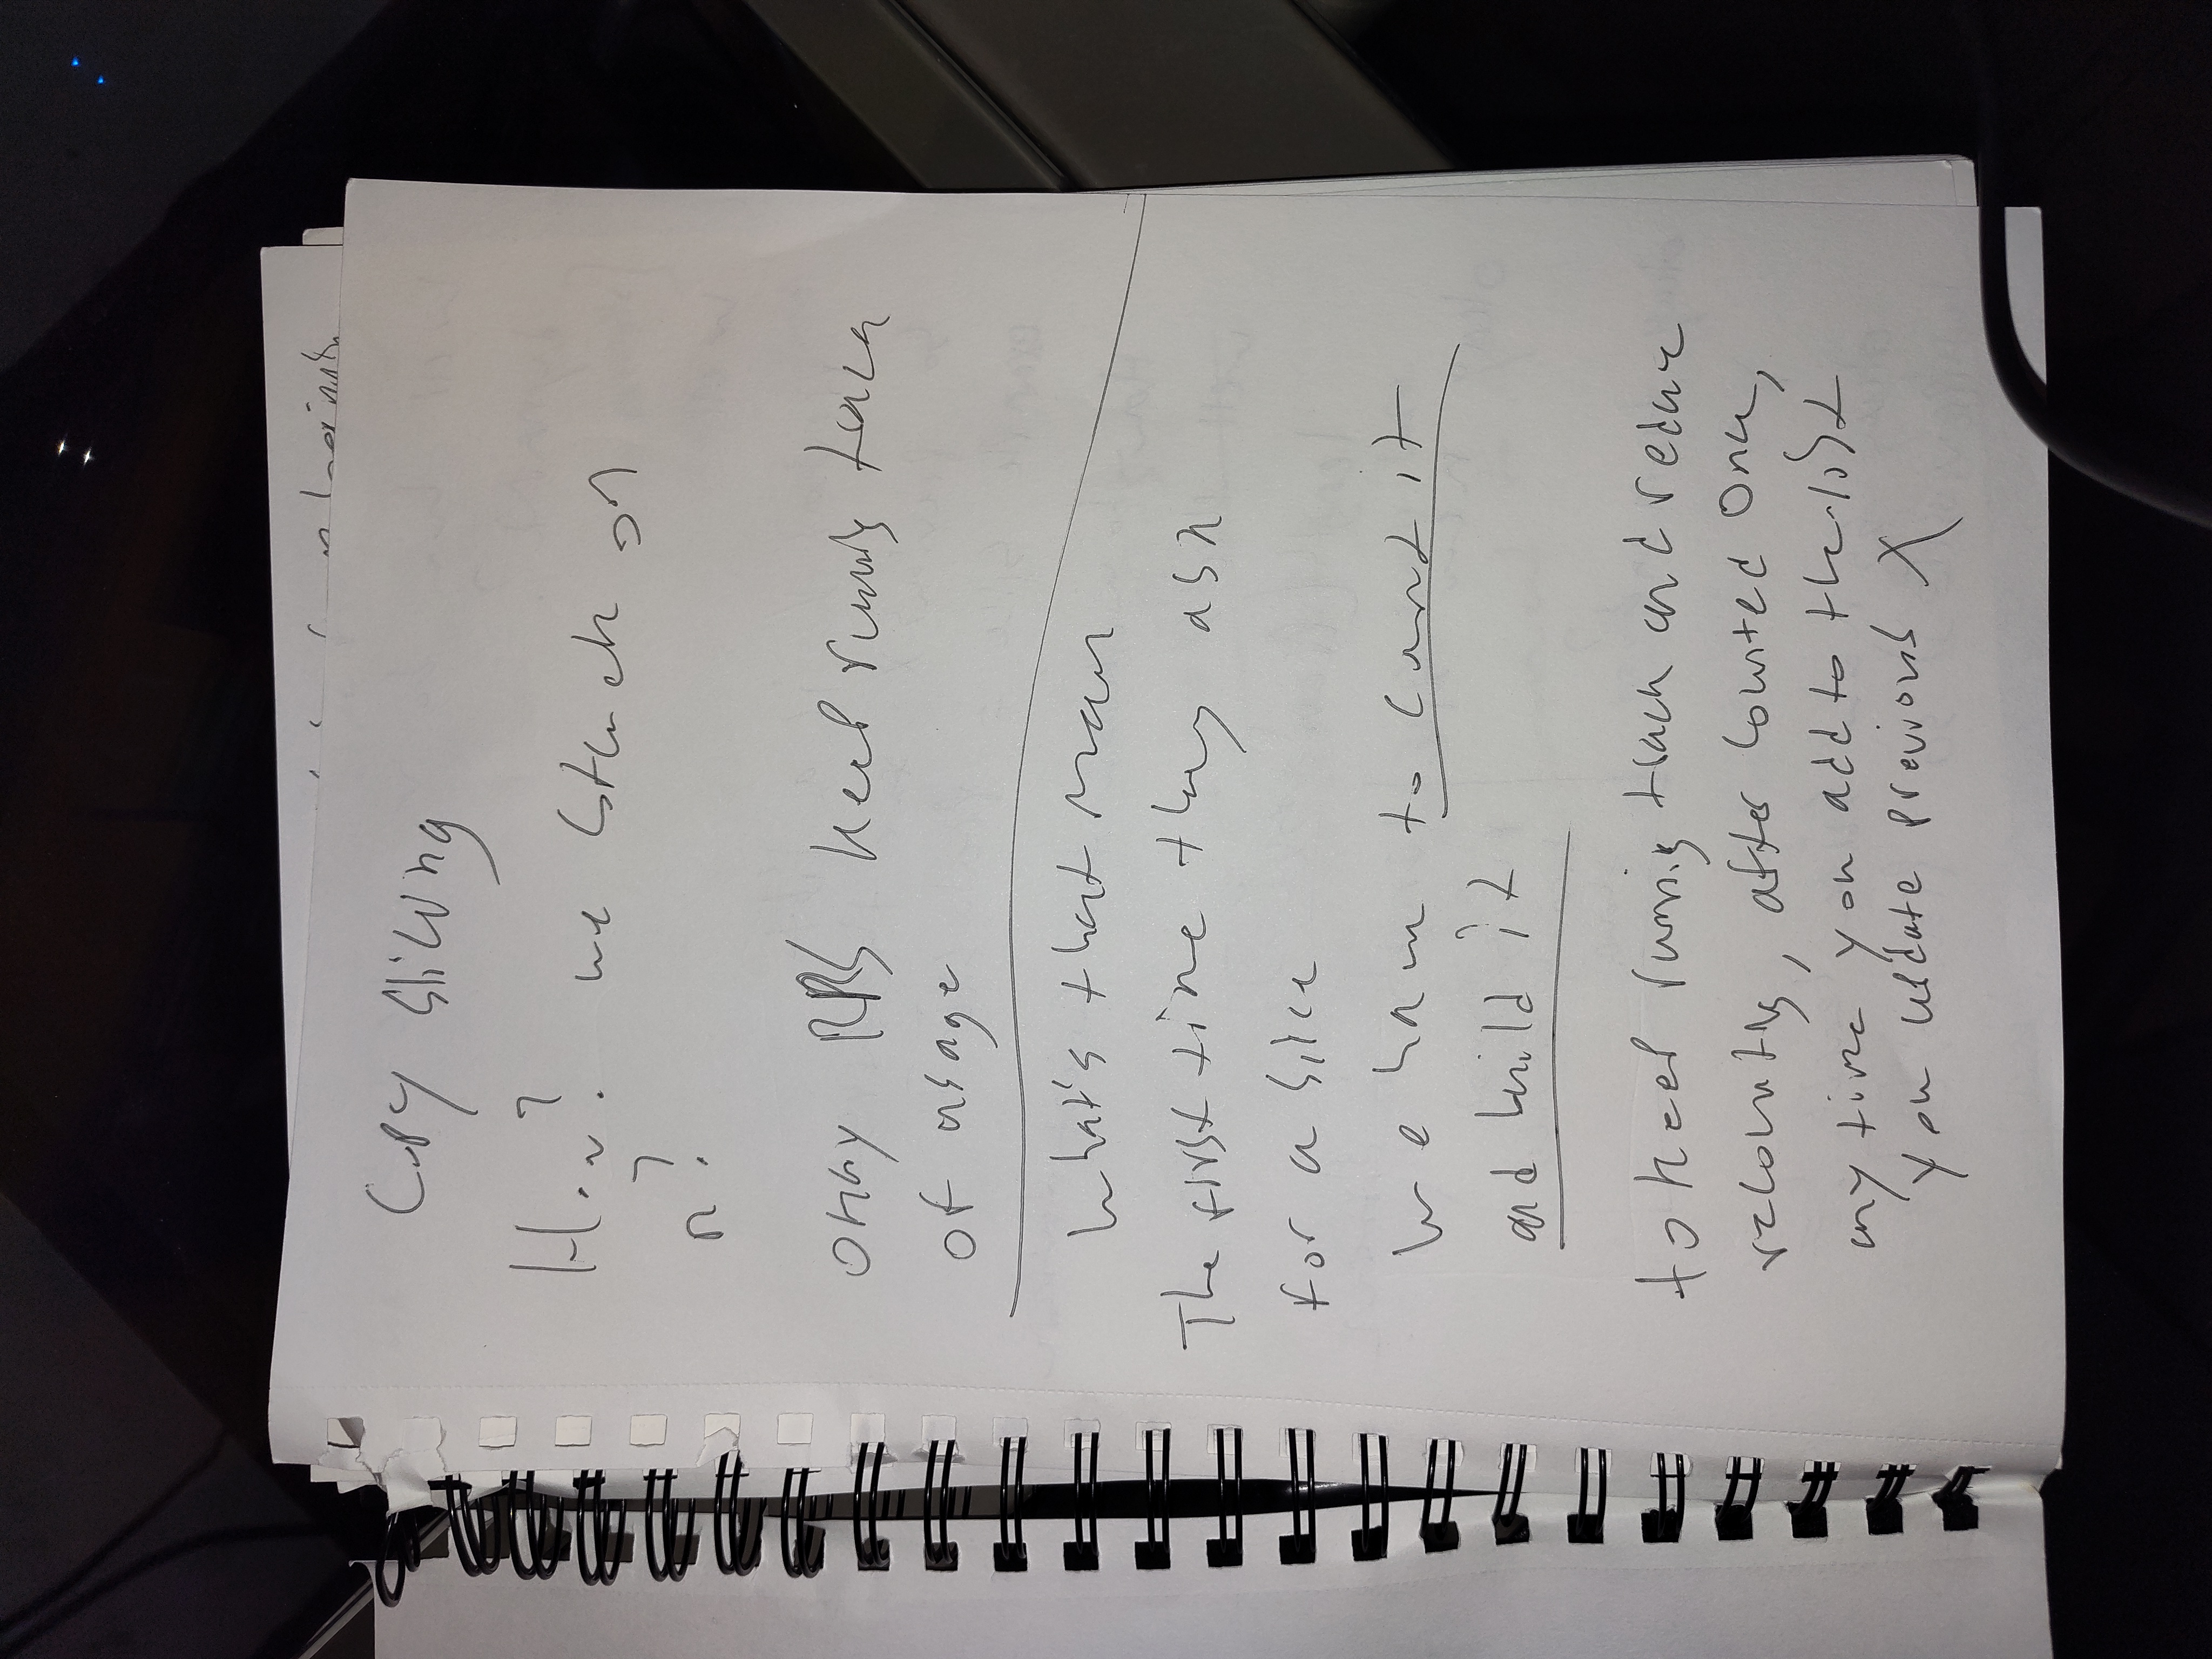 Copy slicing
How? we stuck on
n?
okay RRS keep running track
of usage
what's that mean
The first time they ask
for a slice
we have to count it
and build it
to keep running track and reduce
recounting, after counted once,
any time you add to the list
you update previous X